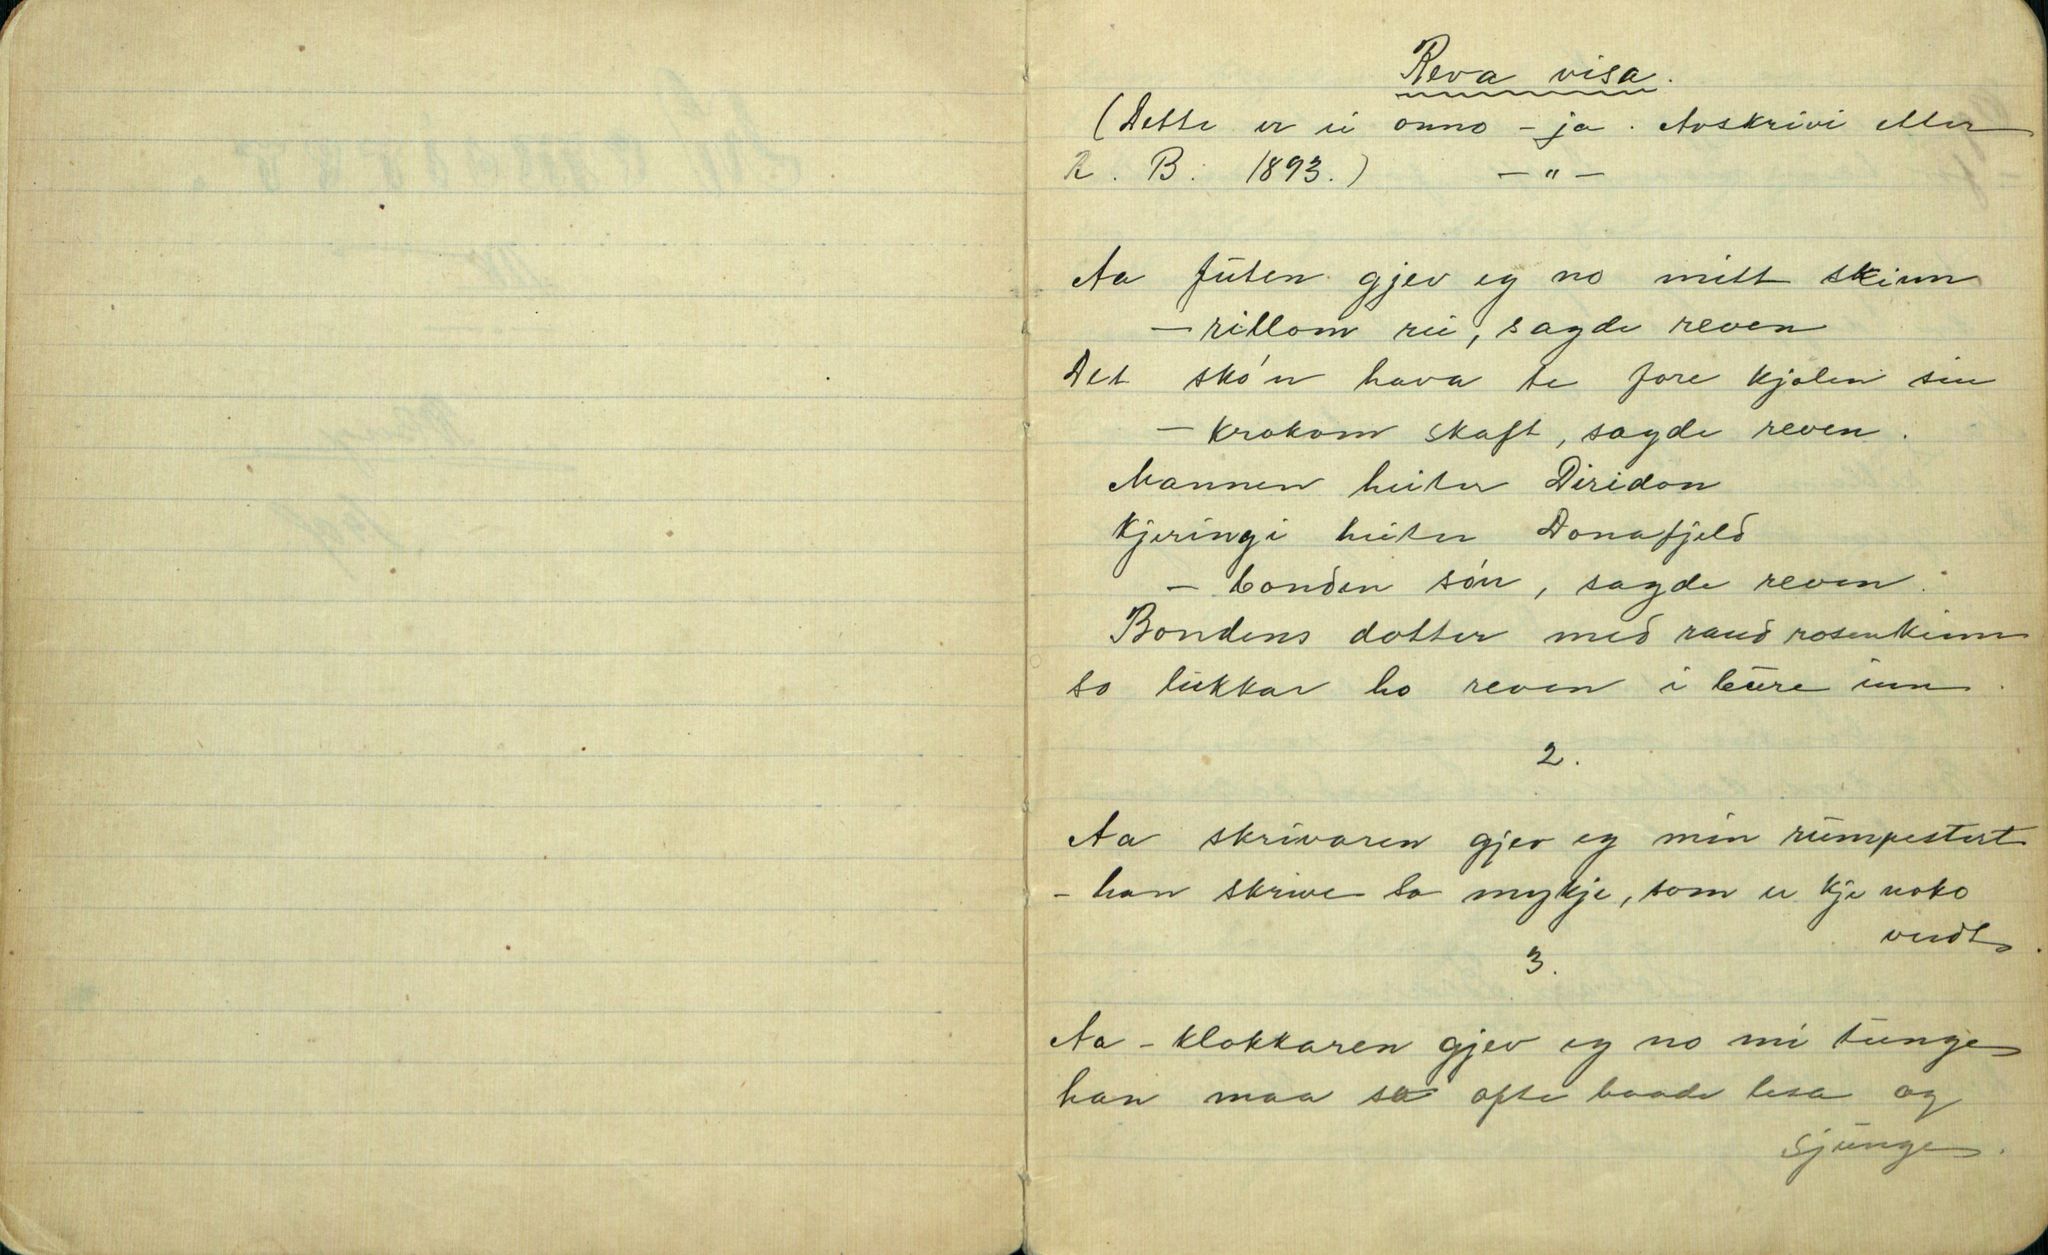 Reva visa.
(Dette er ei onno - ja. Avskrivi etter
R. B. 1893.) - " -
Aa futen gjev eg no mitt skinn
- rillom rei, sagde reven
Det skó'n hava te fore kjolen sin
- krokom skaft, sagde reven.
Mannen heiter Diridon
Kjeringi heiter Donafjeld
- bonden són, sagde reven.
Bondens dotter med raud rosenkinn
so lukkar ho reven i bure inn.
2.
Aa skrivaren gjev eg min rumpestert
- han skrive so mykje, som er kje noko
verdt.
3.
Aa - klokkaren gjev eg no mi tunge
han maa so ofte baade lesa og
sjunge.